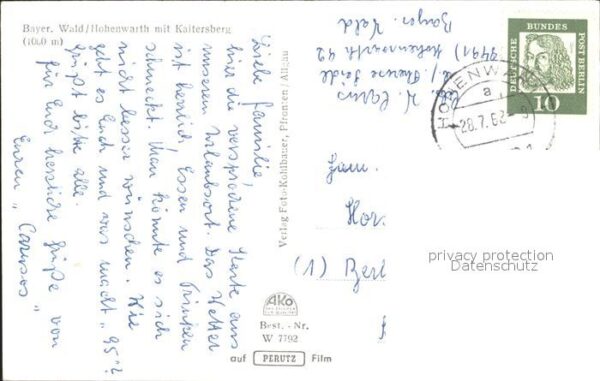 Bayer. Wald/Hohenwarth mit Kaitersberg
(1000 m)
Liebe Familie,
hier die versprochene Karte aus
unserem Urlaubsort. Das Wetter
ist herrlich, Essen und Trinken
schmeckt. Man könnte es sich
nicht besser wünschen. Wie
geht es Euch und was macht "95"?
Grüßt bitte alle.
Für Euch herzliche Grüße von
Euren "Carusos"
Verlag Foto-Kohlbauer, Pfronten/Allgäu
AKO
Best. - Nr.
W 7792
auf PERUTZ Film
Hohenwarth 42
Bayer. Wald
DEUTSCHE BUNDESPOST BERLIN
10
HOHENWAR
a
28.7.62
Fam.
Hor
(1) Berl
privacy protection
Datenschutz